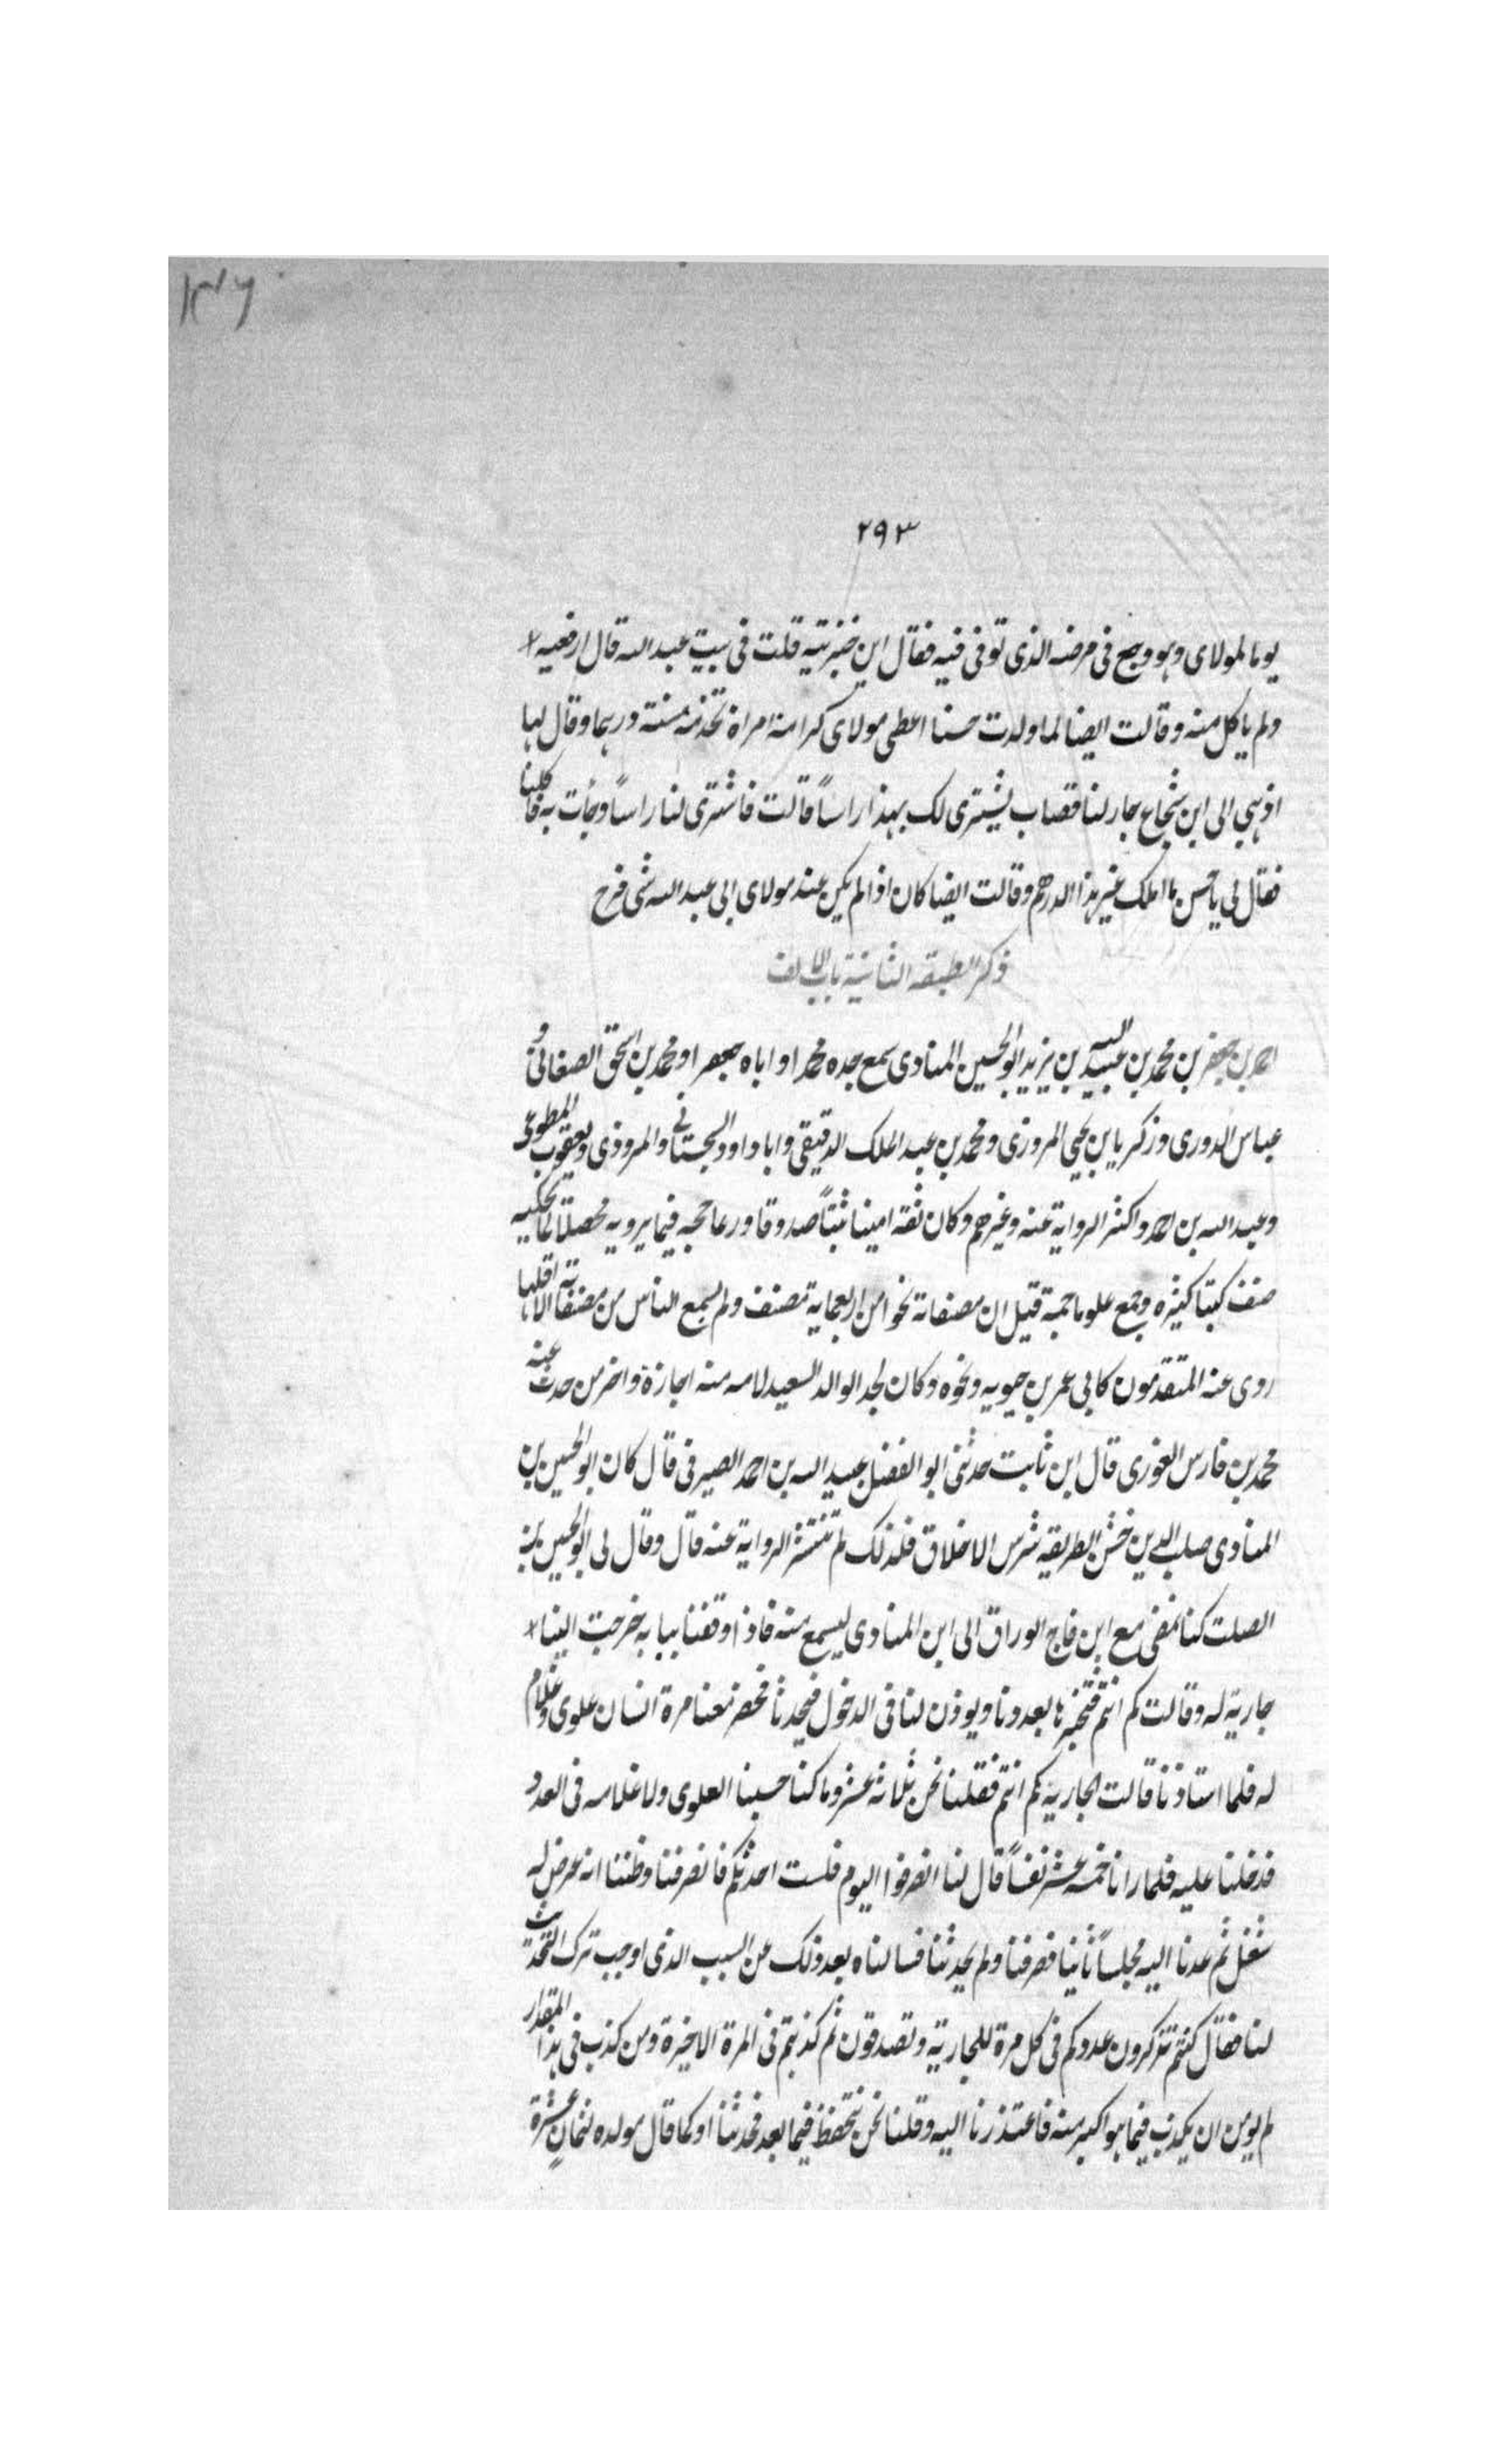 ١٣٦
٢٩٣
يوما لمولاى وهو وجع فى مرضه الذى توفى فيه فقال اين خبزتيه قلت فى بيت عبد الله قال ارفعيه
ولم ياكل منه وقالت ايضا لما ولدت حسنا اعطى مولاى كرامة امراة تخدمنه درهما وقال لها
اذهبي الى ابن شجاع جار لنا قصاب يشترى لك بهذا راساً قالت فاشترى لنا راساً وجأت به فاكلنا
فقال لى يا حسن ما املك غير هذا الدرهم وقالت ايضا كان اذا لم يكن عند مولاى ابى عبد الله شى فرح
ذكر الطبقه الثانية باب الالف
احمد بن جعفر بن محمد بن عبيد الله بن يزيد ابو الحسين المنادى سمع جده محمدا واباه جعفرا ومحمد بن اسحق الصغانى و
عباس الدورى وزكريا بن يحيى المروزى ومحمد بن عبد الملك الدقيقى وابا داود السجستانى والمروذى ويعقوب المطوعى
وعبد الله بن احمد واكثر الرواية عنه وغيرهم وكان ثقة امينا ثبتاً صدوقا ورعا حجه فيما يرويه محصلا لما يحكيه
صنف كتبا كثيره وجمع علوما جمة قيل ان مصنفاته نحوا من اربعماية مصنف ولم يسمع الناس من مصنفاته الا اقلها
روى عنه المتقدمون كابى عمر بن حيويه ونحوه وكان لجد الوالد السعيد لامه منه اجازة واخر من حدث عنه
محمد بن فارس الغورى قال ابن ثابت حدثنى ابو الفضل عبيد الله بن احمد الصيرفى قال كان ابو الحسين بن
المنادى صلب الدين خشن الطريقه شرس الاخلاق فلذلك لم تنتشر الرواية عنه قال وقال لى ابو الحسين بن
الصلت كنا نمضى مع ابن قاج الوراق الى ابن المنادى ليسمع منه فاذا وقفنا ببابه خرجت الينا
جارية له وقالت كم انتم فنخبرها بعددنا ويوذن لنا فى الدخول فيحدثنا فحضر معنا مرة انسان علوى وغلام
له فلما استاذنا قالت الجارية كم انتم فقلنا نحن ثلاثة عشر وما كنا حسبنا العلوى ولا غلامه فى العدد
فدخلنا عليه فلما رانا خمسه عشر نفساً قال لنا انصرفوا اليوم فلست احدثكم فانصرفنا وظننا انه عرض له
شغل ثم عدنا اليه مجلساً ثانيا فصرفنا ولم يحدثنا فسالناه بعد ذلك عن السبب الذى اوجب ترك التحديث
لنا فقال كنتم تذكرون عددكم فى كل مرة للجارية وتصدقون ثم كذبتم فى المرة الاخيرة ومن كذب فى هذا المقدار
لم يومن ان يكذب فيما هو اكبر منه فاعتذرنا اليه وقلنا نحن نتحفظ فيما بعد فحدثنا او كما قال مولده لثمان عشرة